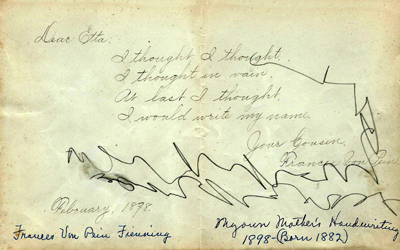 Dear Etta:
I thought, I thought,
I thought in vain,
At last I thought,
I would write my name.
Your Cousin,
Frances Von Pein.
February, 1898
Frances Von Pein Fienning
My own Mother's Handwriting
1898 - (Born 1882)